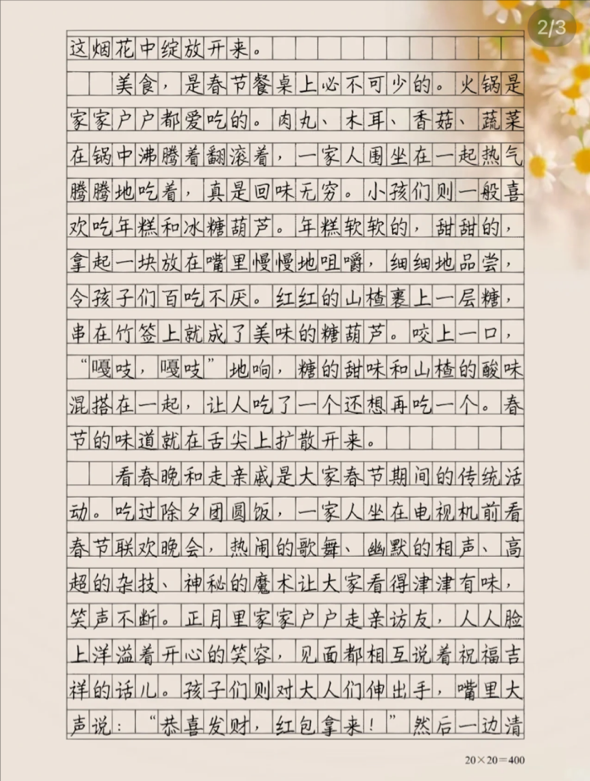 2/3
这烟花中绽放开来。
美食，是春节餐桌上必不可少的。火锅是
家家户户都爱吃的。肉丸、木耳、香菇、蔬菜
在锅中沸腾着翻滚着，一家人围坐在一起热气
腾腾地吃着，真是回味无穷。小孩们则一般喜
欢吃年糕和冰糖葫芦。年糕软软的，甜甜的，
拿起一块放在嘴里慢慢地咀嚼，细细地品尝，
令孩子们百吃不厌。红红的山楂裹上一层糖，
串在竹签上就成了美味的糖葫芦。咬上一口，
“嘎吱，嘎吱”地响，糖的甜味和山楂的酸味
混搭在一起，让人吃了一个还想再吃一个。春
节的味道就在舌尖上扩散开来。
看春晚和走亲戚是大家春节期间的传统活
动。吃过除夕团圆饭，一家人坐在电视机前看
春节联欢晚会，热闹的歌舞、幽默的相声、高
超的杂技、神秘的魔术让大家看得津津有味，
笑声不断。正月里家家户户走亲访友，人人脸
上洋溢着开心的笑容，见面都相互说着祝福吉
祥的话儿。孩子们则对大人们伸出手，嘴里大
声说：“恭喜发财，红包拿来！”然后一边清
20×20=400